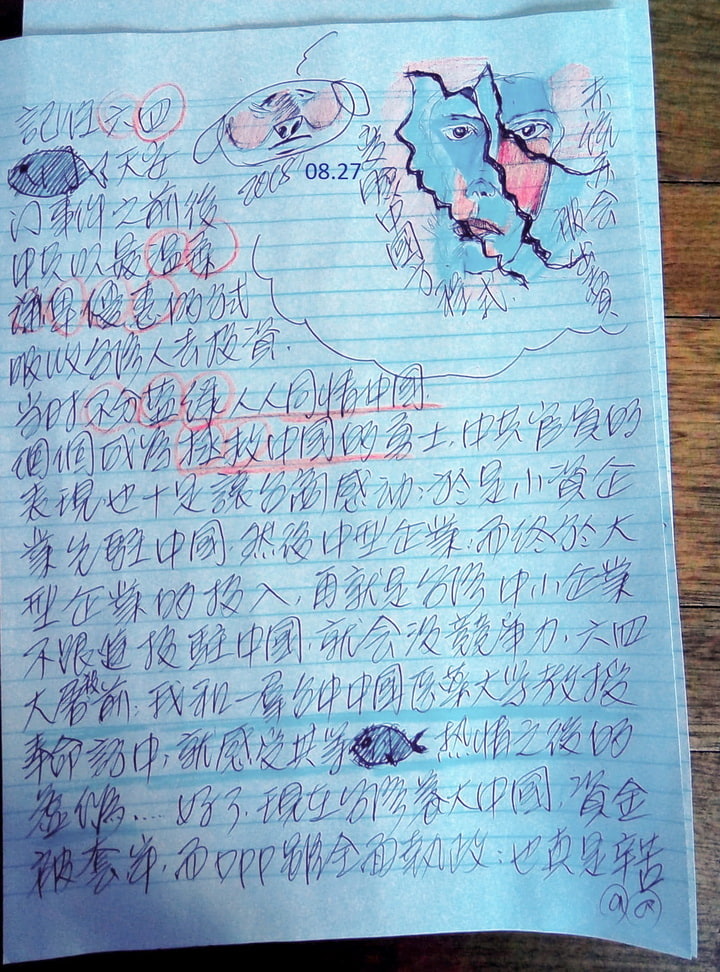 記憶六四
天安
門事件之前後
中共以最溫柔
謙卑優惠的方式
吸收台灣人去投資.
當時不分藍綠人人同情中國
個個成為拯救中國的勇士,中共官員的
表現也十足讓台商感动;於是小資企
業先駐中國,然後中型企業;而終於大
型企業的投入,再就是台灣中小企業
不跟進投駐中國,就会沒競爭力,六四
大屠殺前;我和一羣台中中國医藥大学教授
奉命訪中,就感受共軍 热情之後的
虛偽.... 好了,現在台灣養大中國,資金
被套牢,而DPP雖全面執政;也真是辛苦
2005
08.27